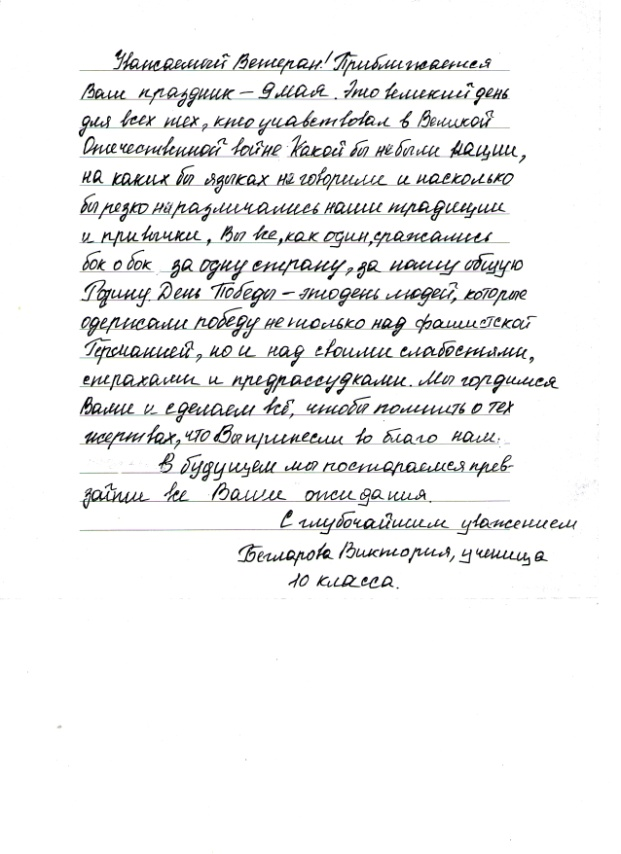 Уважаемый Ветеран! Приближается
Ваш праздник – 9 мая. Это великий день
для всех тех, кто учавствовал в Великой
Отечественной войне Какой бы не были нации,
на каких бы языках не говорили и насколько
бы резко не различались наши традиции
и привычки, Вы все, как один, сражались
бок о бок за одну страну, за нашу общую
Родину. День Победы – это день людей, которые
одержали победу не только над фашистской
Германией, но и над своими слабостями,
страхами и предрассудками. Мы гордимся
Вами и сделаем всё, чтобы помнить о тех
жертвах, что Вы принесли во благо нам.
В будущем мы постараемся прев-
зайти все Ваши ожидания.
С глубочайшим уважением
Бегларова Виктория, ученица
10 класса.